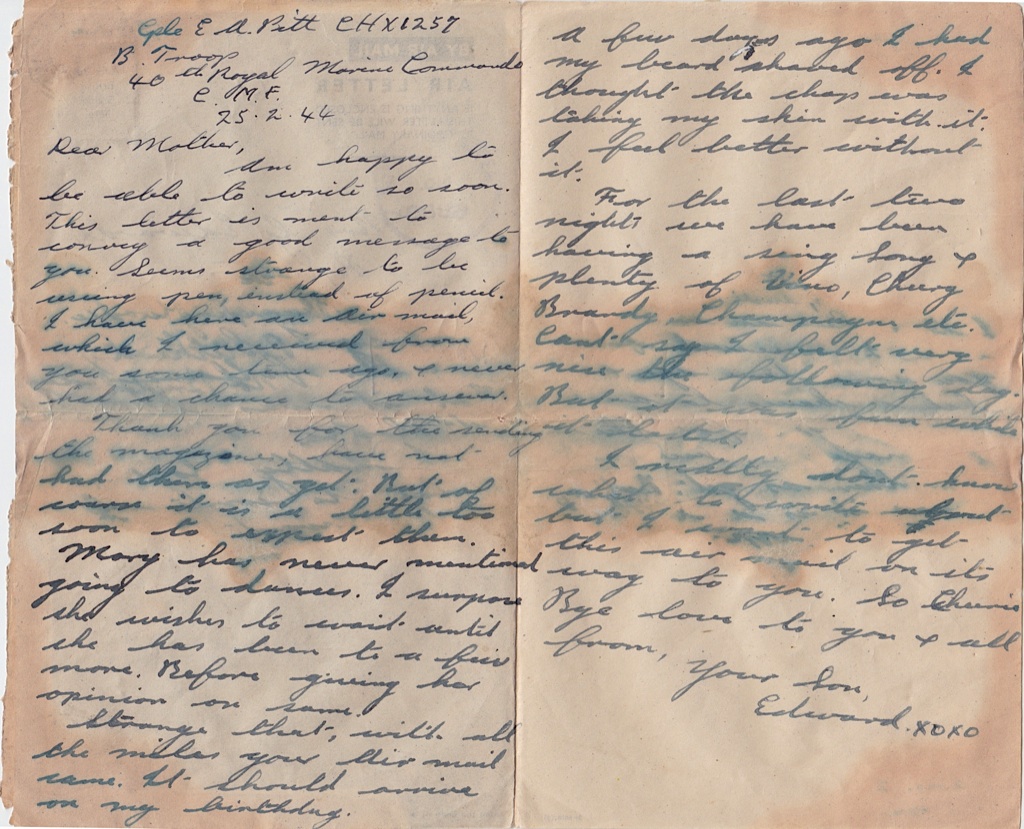 Cple E A. Pitt CHX1257
B. Troop
40th Royal Marine Commando
C. M. F.
25.2.44
Dear Mother,
Am happy to
be able to write so soon.
This letter is ment to
convey a good message to
you. Seems strange to be
using pen, instead of pencil.
I have here an air mail,
which I received from
you some time ago, & never
had a chance to answer.
Thank you for the sending
the magazines, have not
had them as yet. But of
course it is a little too
soon to expect them.
Mary has never mentioned
going to dances. I surpose
she wishes to wait until
she has been to a few
more. Before giving her
opinion on same.
Strange that, with all
the miles your Air mail
came. It should arrive
on my birthday.
A few days ago I had
my beard shaved off. I
thought the chap was
taking my skin with it.
I feel better without
it.
For the last two
nights we have been
having a sing song &
plenty of Vino, Cherry
Brandy, Champayne etc.
Cant say I felt very
nice the following day.
But it was fun while
it lasted.
I really dont know
what to write about
but I want to get
this air mail on its
way to you. So Cheerio
Bye love to you & all
from,
Your Son,
Edward. XOXO